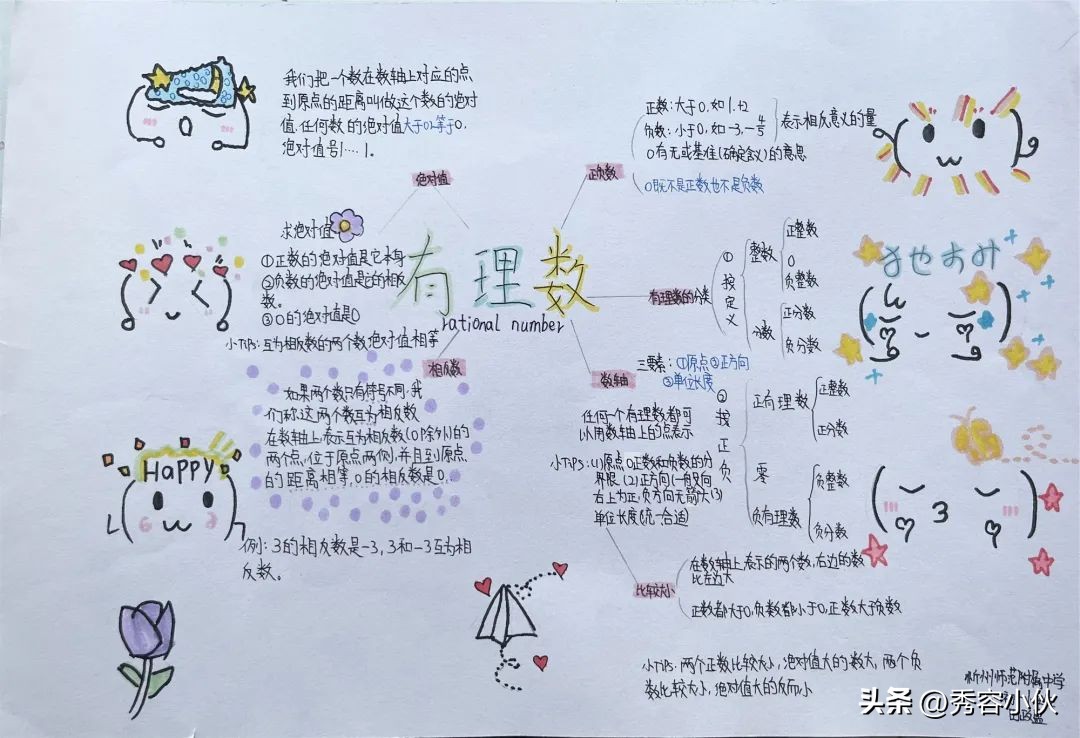 我们把一个数在数轴上对应的点
到原点的距离叫做这个数的绝对
值.任何数的绝对值大于0或等于0.
绝对值号|····|.
绝对值
求绝对值
①正数的绝对值是它本身
②负数的绝对值是它的相反
数。
③0的绝对值是0
小Tips:互为相反数的两个数绝对值相等
有理数
rational number
相反数
如果两个数只有符号不同,我
们称这两个数互为相反数
在数轴上,表示互为相反数(0除外)的
两个点,位于原点两侧,并且到原点
的距离相等,0的相反数是0.
例:3的相反数是-3,3和-3互为相
反数。
HAPPY
正负数
正数:大于0,如1.+2
负数:小于0,如-3,-4/5
表示相反意义的量
0有无或基准(确定含义)的意思
0既不是正数也不是负数
有理数的分类
①按定义
整数
正整数
0
负整数
分数
正分数
负分数
②按正负
正有理数
正整数
正分数
零
负有理数
负整数
负分数
数轴
三要素:①原点②正方向
③单位长度
任何一个有理数都可
以用数轴上的点表示
小Tips:(1)原点0正数和负数的分
界限.(2)正方向(一般又向
右上为正,负方向无箭头(3)
单位长度(统一合适)
比较大小
在数轴上表示的两个数,右边的数
比左边大
正数都大于0,负数都小于0,正数大于负数
小Tips:两个正数比较大小,绝对值大的数大,两个负
数比较大小,绝对值大的反而小
忻州师范附属中学
头条@秀容小伙